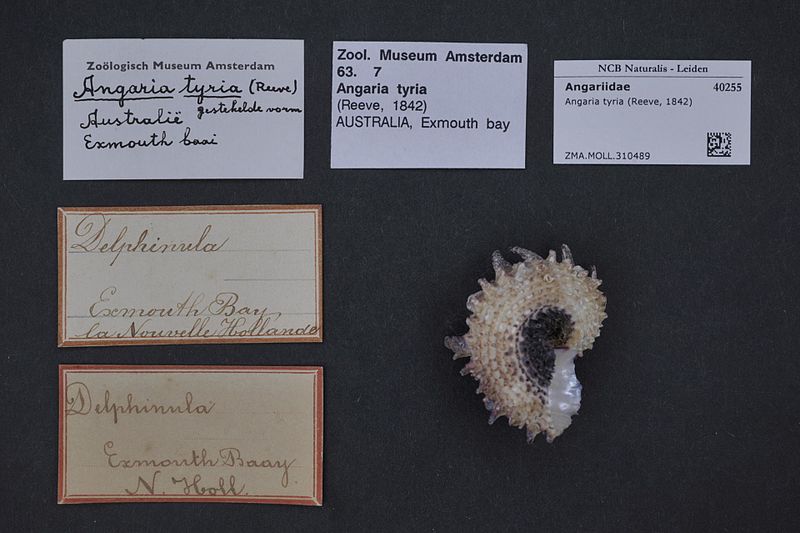 Zoölogisch Museum Amsterdam
Angaria tyria (Reeve)
gestekelde vorm
Australië
Exmouth baai
Zool. Museum Amsterdam
63. 7
Angaria tyria
(Reeve, 1842)
AUSTRALIA, Exmouth bay
NCB Naturalis - Leiden
Angariidae 40255
Angaria tyria (Reeve, 1842)
ZMA.MOLL.310489
Delphinula
Exmouth Bay,
la Nouvelle Hollande
Delphinula
Exmouth Baay.
N. Holl.